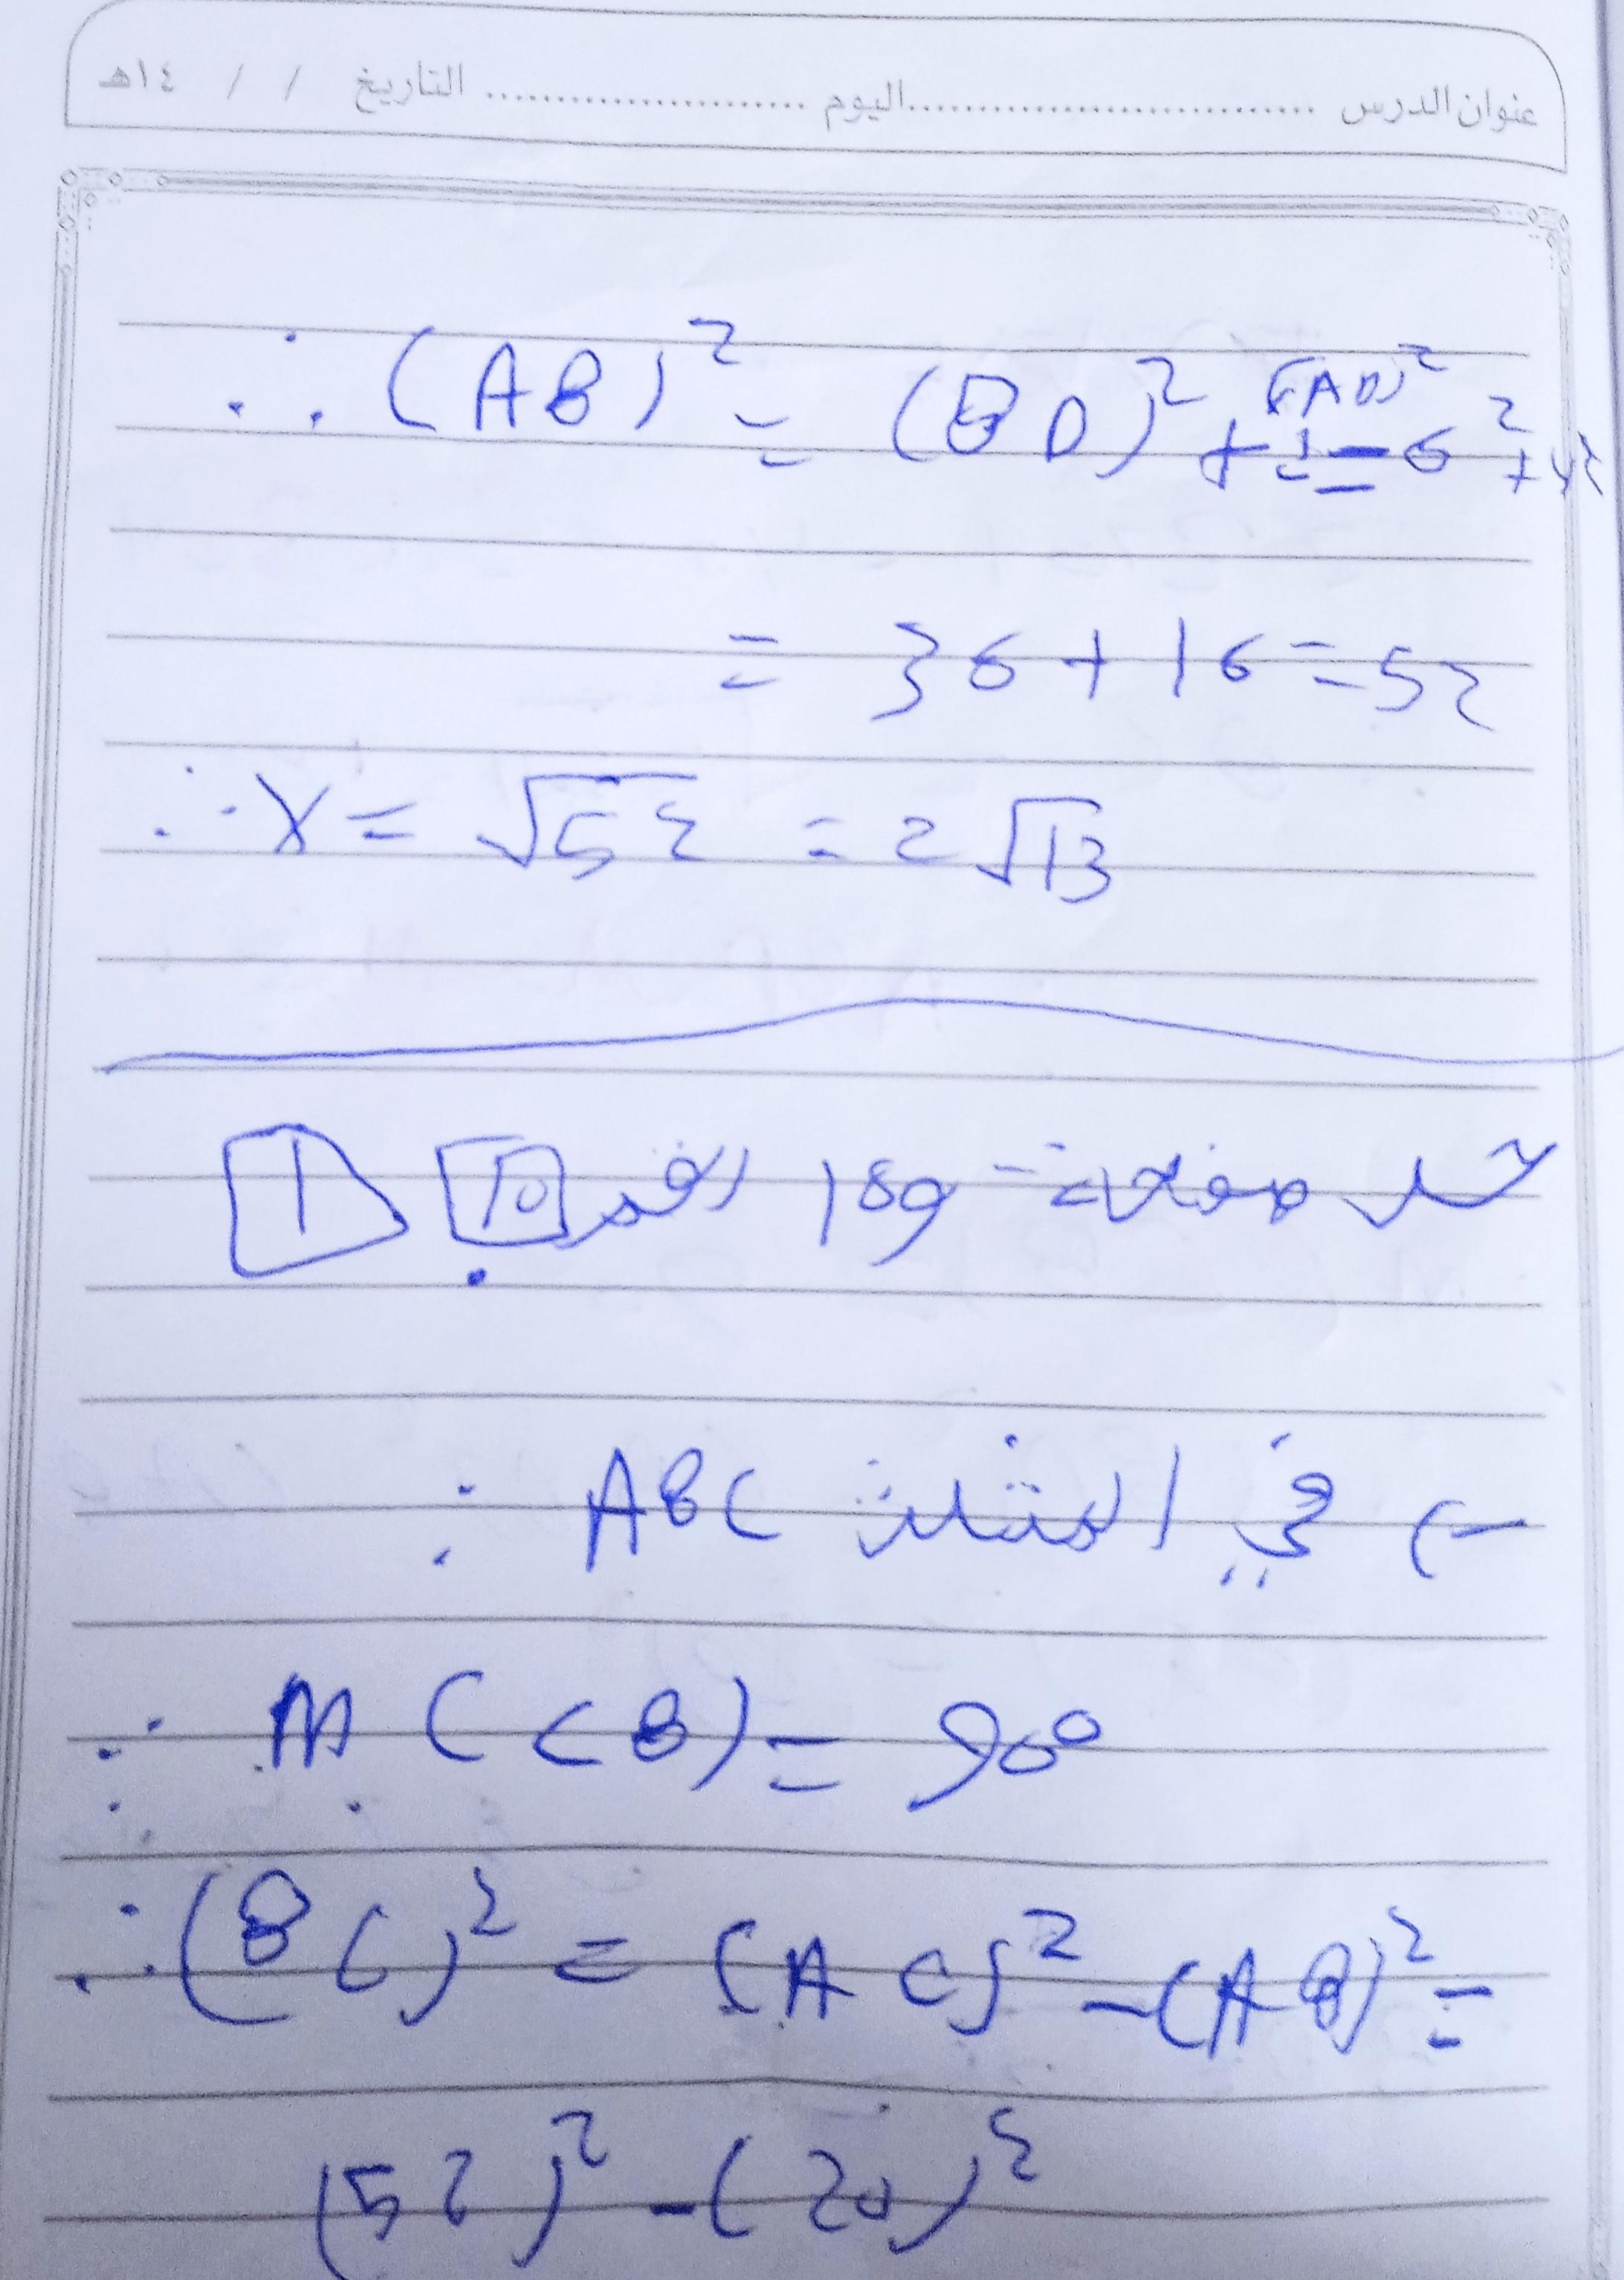 عنوان الدرس ........................ اليوم .................... التاريخ / / ١٤هـ
∴ (AB)² = (BD)² + (AD)² = 6² + 4²
= 36 + 16 = 52
∴ X = √52 = 2√13
صفحة 189
في المثلث ABC :
∵ m(<B) = 90°
∴ (BC)² = (AC)² - (AB)² =
(52)² - (20)²